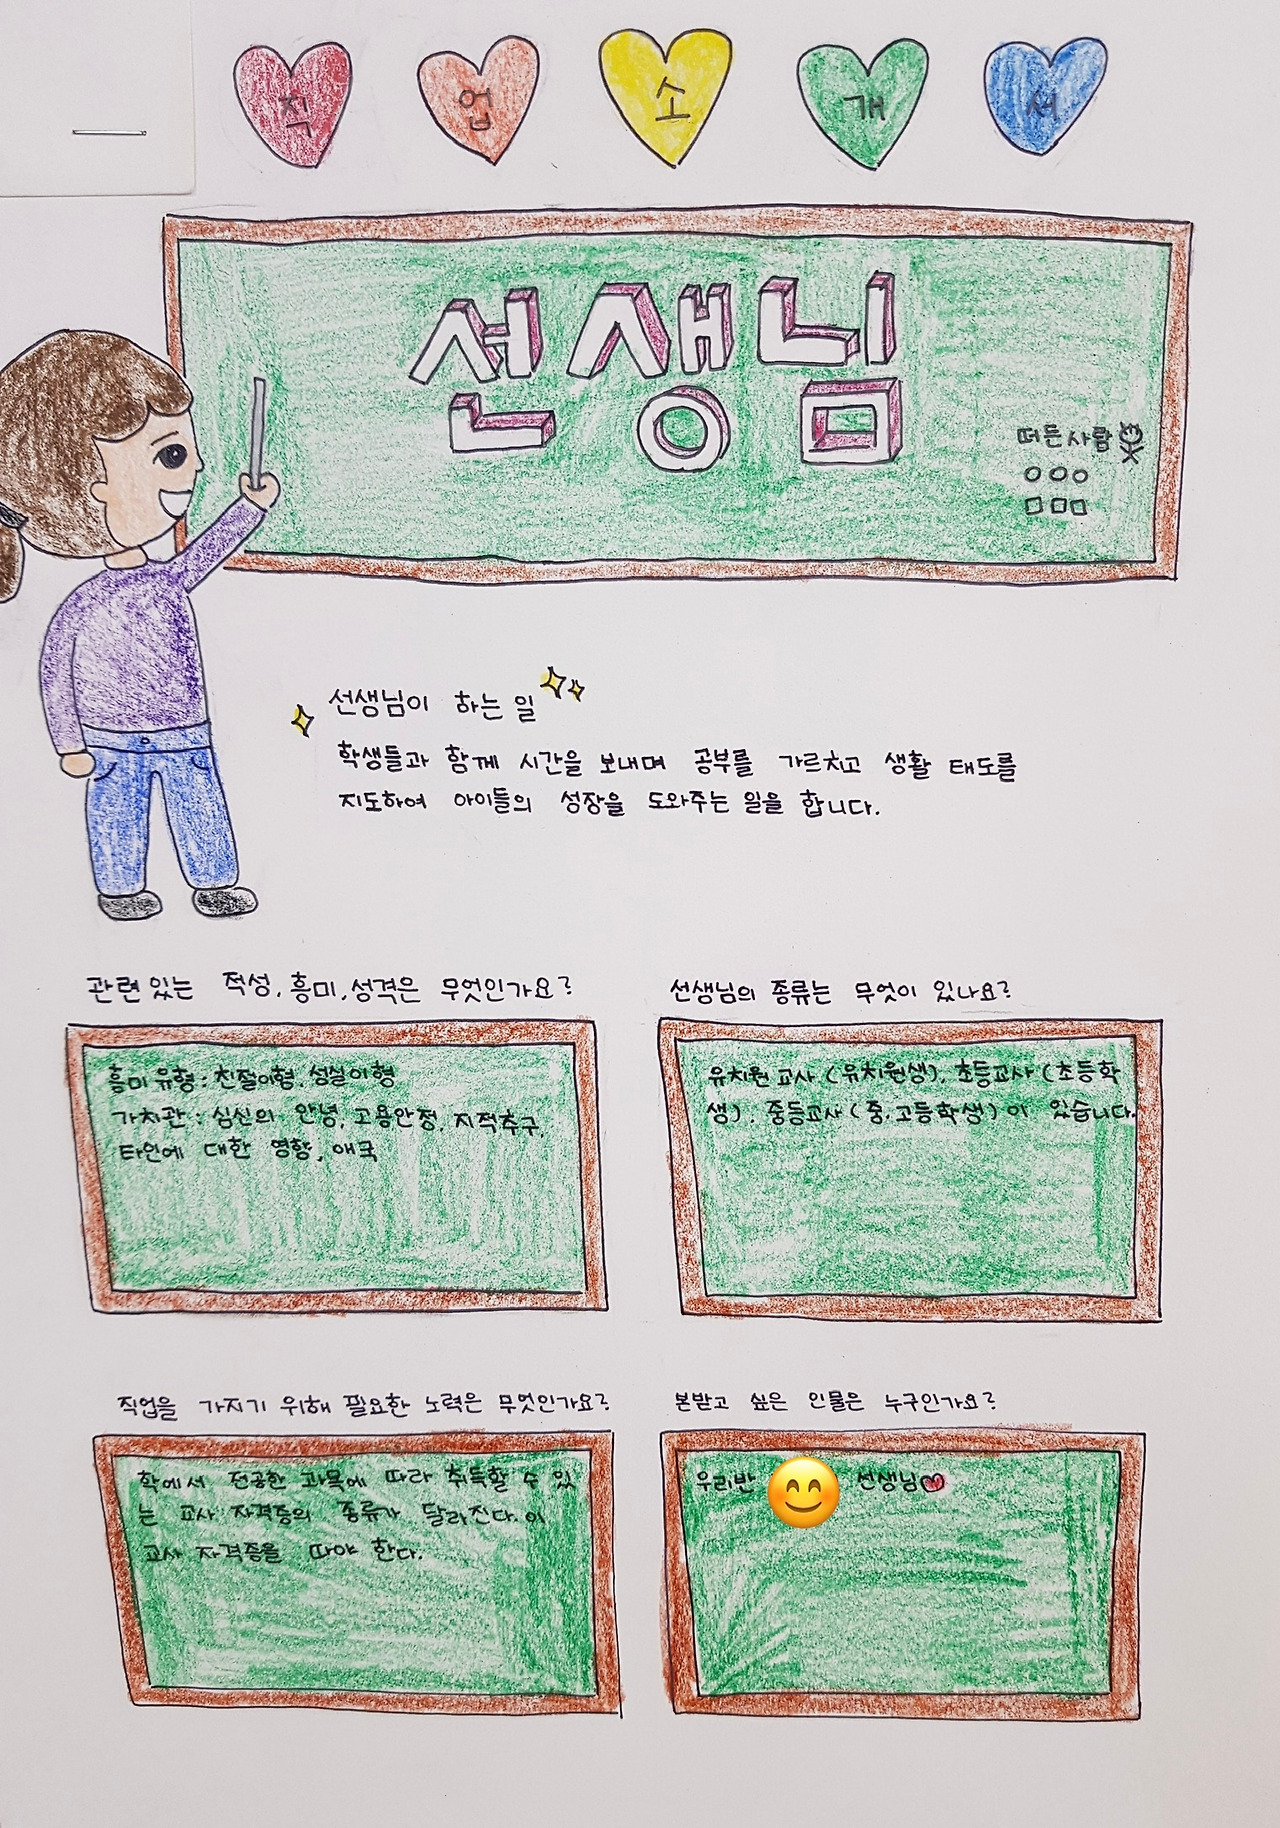 직 업 소 개 서
선생님
떠든사람
○○○
□□□
선생님이 하는 일
학생들과 함께 시간을 보내며 공부를 가르치고 생활 태도를
지도하여 아이들의 성장을 도와주는 일을 합니다.
관련있는 적성, 흥미, 성격은 무엇인가요?
흥미 유형: 친절이형, 성실이형
가치관: 심신의 안녕, 고용안정, 지적추구,
타인에 대한 영향, 애국
선생님의 종류는 무엇이 있나요?
유치원 교사 (유치원생), 초등교사 (초등학
생), 중등교사 (중,고등학생) 이 있습니다.
직업을 가지기 위해 필요한 노력은 무엇인가요?
학에서 전공한 과목에 따라 취득할 수 있
는 교사 자격증의 종류가 달라진다. 이
교사 자격증을 따야 한다.
본받고 싶은 인물은 누구인가요?
우리반 선생님